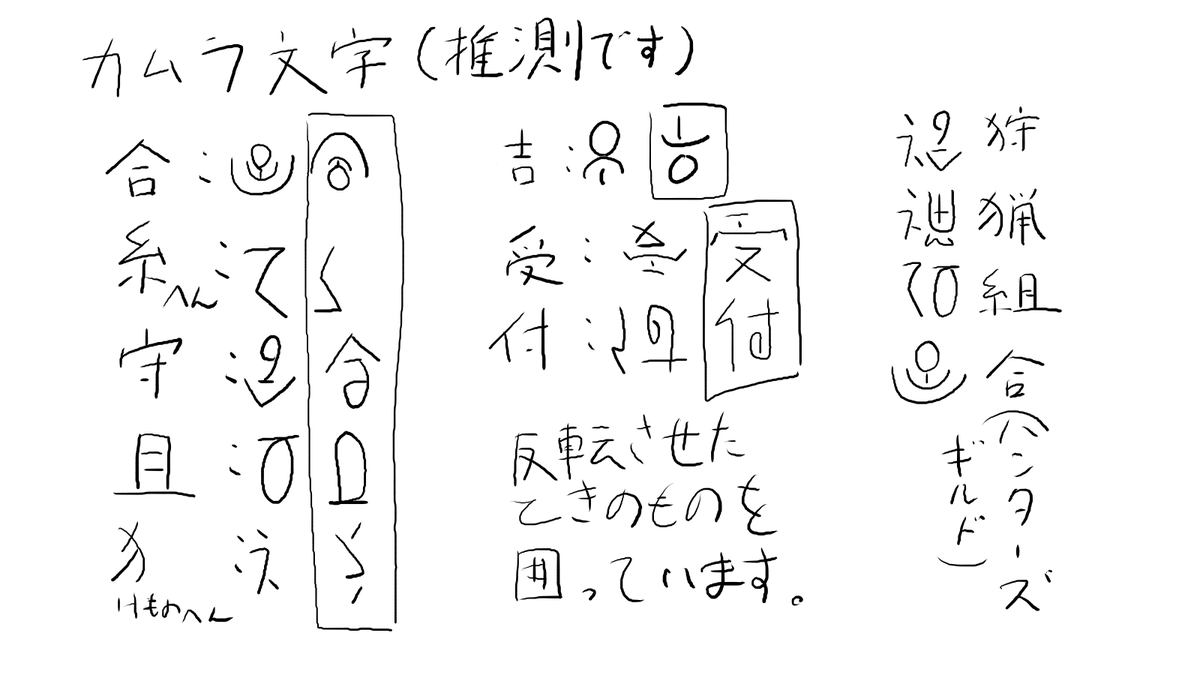 カムラ文字(推測です)
合:
糸へん:
守:
且:
犭
けものへん
吉:
受:
付:
反転させた
ときのものを
囲っています。
狩
猟
組
合(ハンターズ
ギルド)